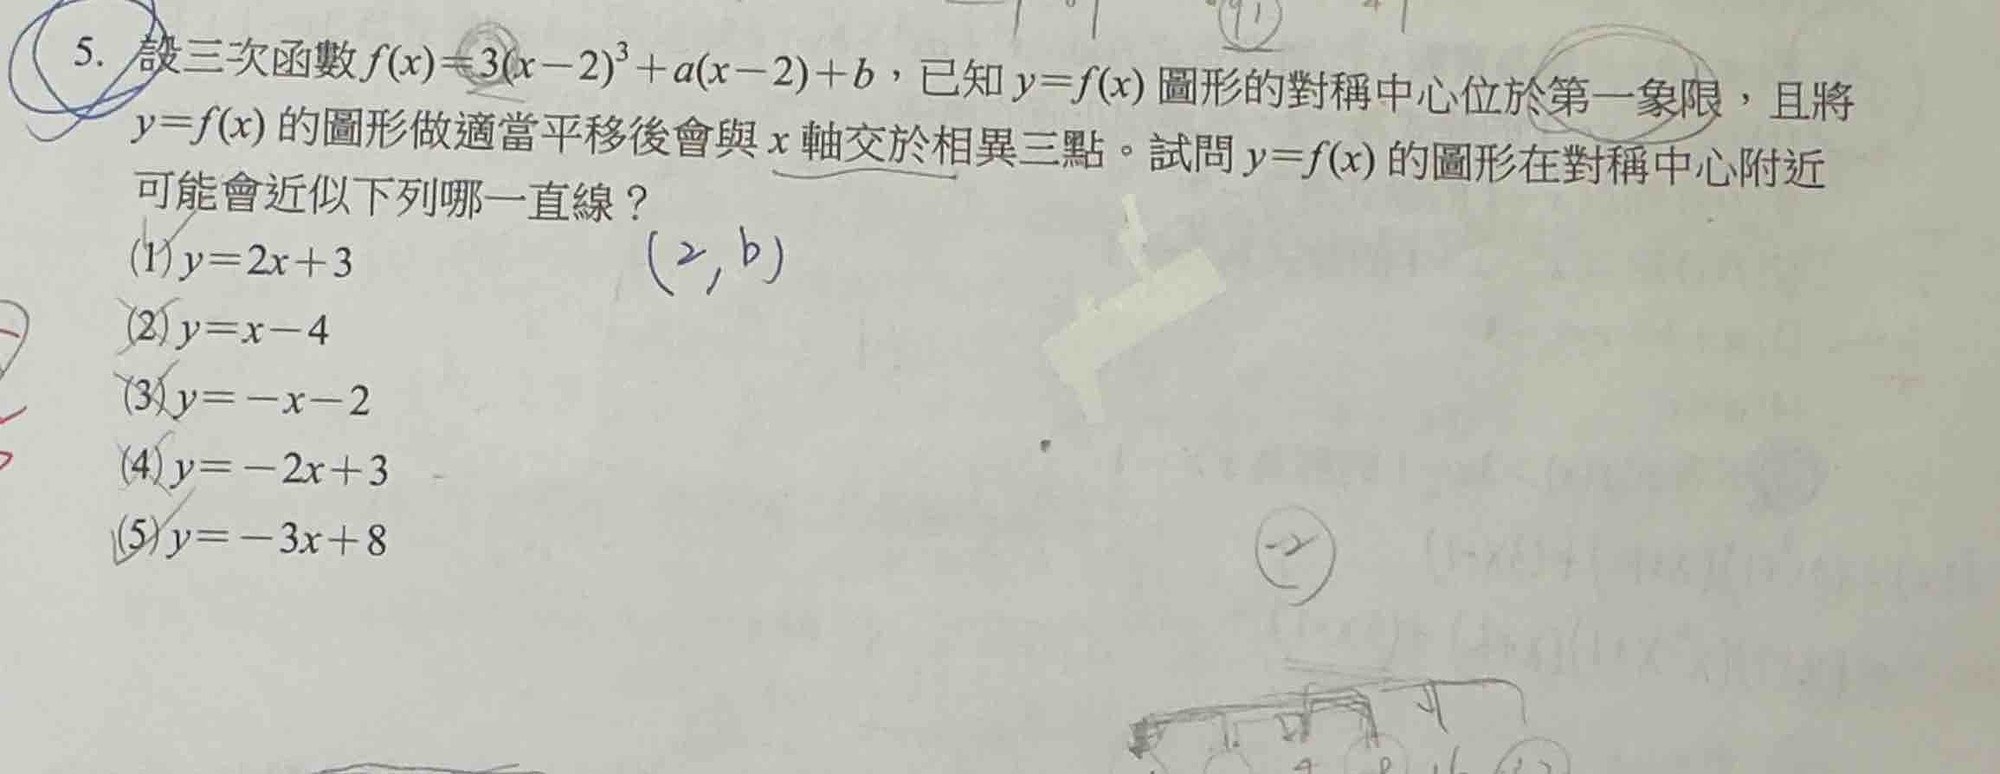 5. 設三次函數 f(x)=3(x-2)³+a(x-2)+b,已知 y=f(x) 圖形的對稱中心位於第一象限,且將
y=f(x) 的圖形做適當平移後會與 x 軸交於相異三點。試問 y=f(x) 的圖形在對稱中心附近
可能會近似下列哪一直線?
(1) y=2x+3
(2, b)
(2) y=x-4
(3) y=-x-2
(4) y=-2x+3
(5) y=-3x+8
-2